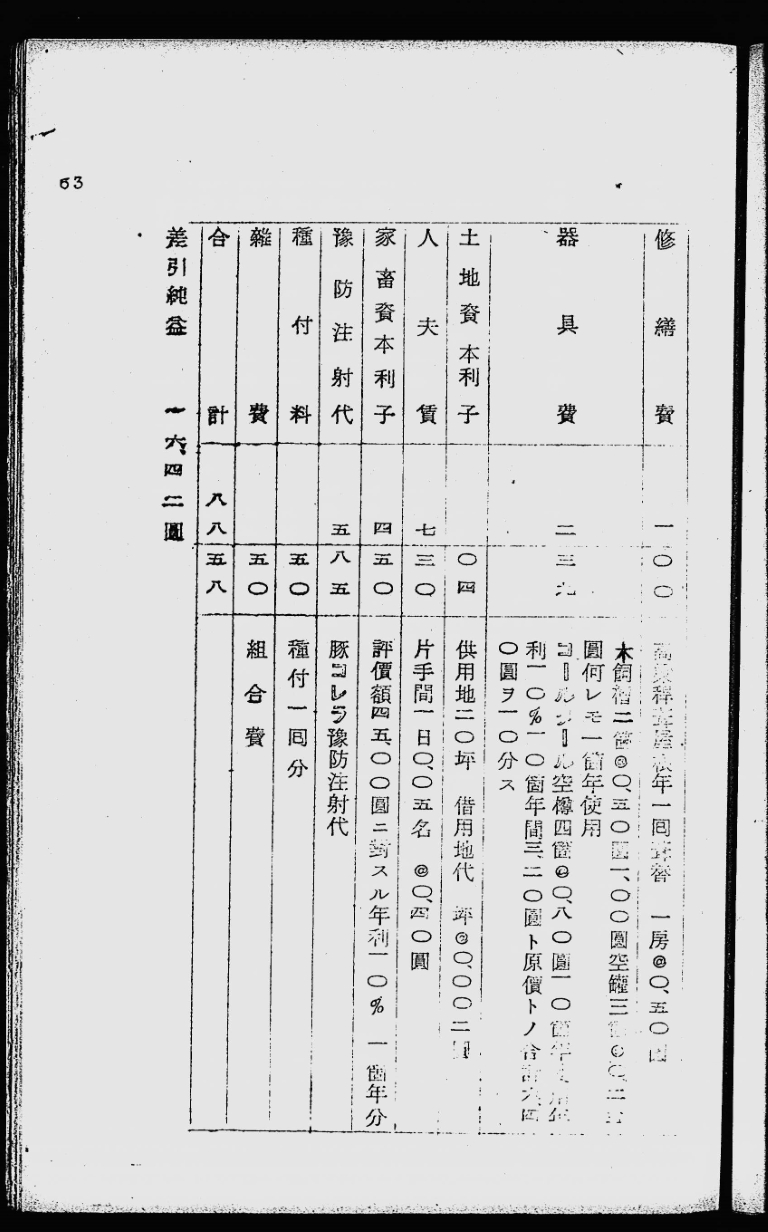 修繕費 一 〇〇 年一囘 一房@〇、五〇
器具費 二 三九 木飼槽二箇@〇、五〇圓一、〇〇圓空罐三
圓何レモ一箇年使用
コールタール空樽四箇@〇、八〇圓一〇箇年
利一〇%一〇箇年間三、二〇圓ト原價トノ合計六、四
〇圓ヲ一〇分ス
土地資本利子 〇四 供用地二〇坪 借用地代 坪@〇、〇〇二圓
人夫賃 七 三〇 片手間一日〇、〇五名 @〇、四〇圓
家畜資本利子 四 五〇 評價額四五、〇〇圓ニ對スル年利一〇% 一箇年分
豫防注射代 五 八五 豚コレラ豫防注射代
種付料 五〇 種付一囘分
雜費 五〇 組合費
合計 八八 五八
差引純益 一六、四二圓
63